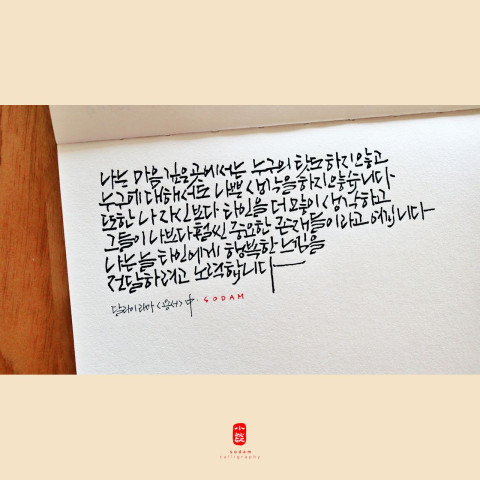 나는 마음 깊은 곳에서는 누구의 탓도 하지 않고
누구에 대해서도 나쁜 생각을 하지 않습니다
또한 나 자신보다 타인을 더 많이 생각하고
그들이 나보다 훨씬 중요한 존재들이라고 여깁니다
나는 늘 타인에게 행복한 느낌을
전달하려고 노력합니다
달라이라마 <용서> 中. SODAM
sodam
calligraphy